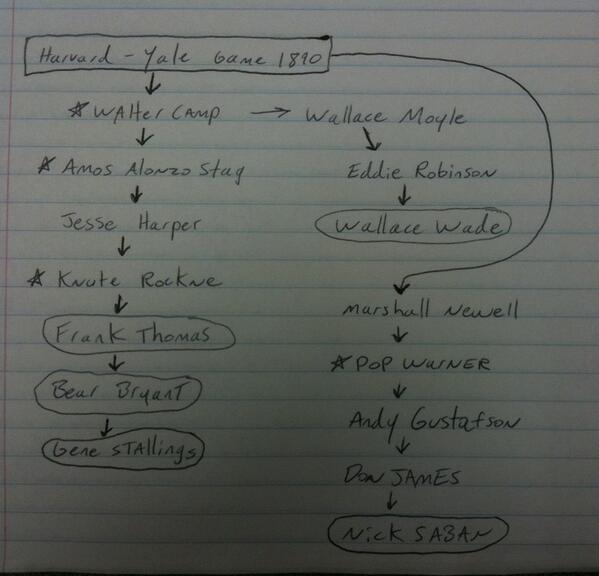 Harvard - Yale Game 1890
☆ Walter Camp → Wallace Moyle
☆ Amos Alonzo Stag
Eddie Robinson
Jesse Harper
Wallace Wade
☆ Knute Rockne
Marshall Newell
Frank Thomas
☆ Pop Warner
Bear Bryant
Andy Gustafson
Gene Stallings
Don James
Nick Saban